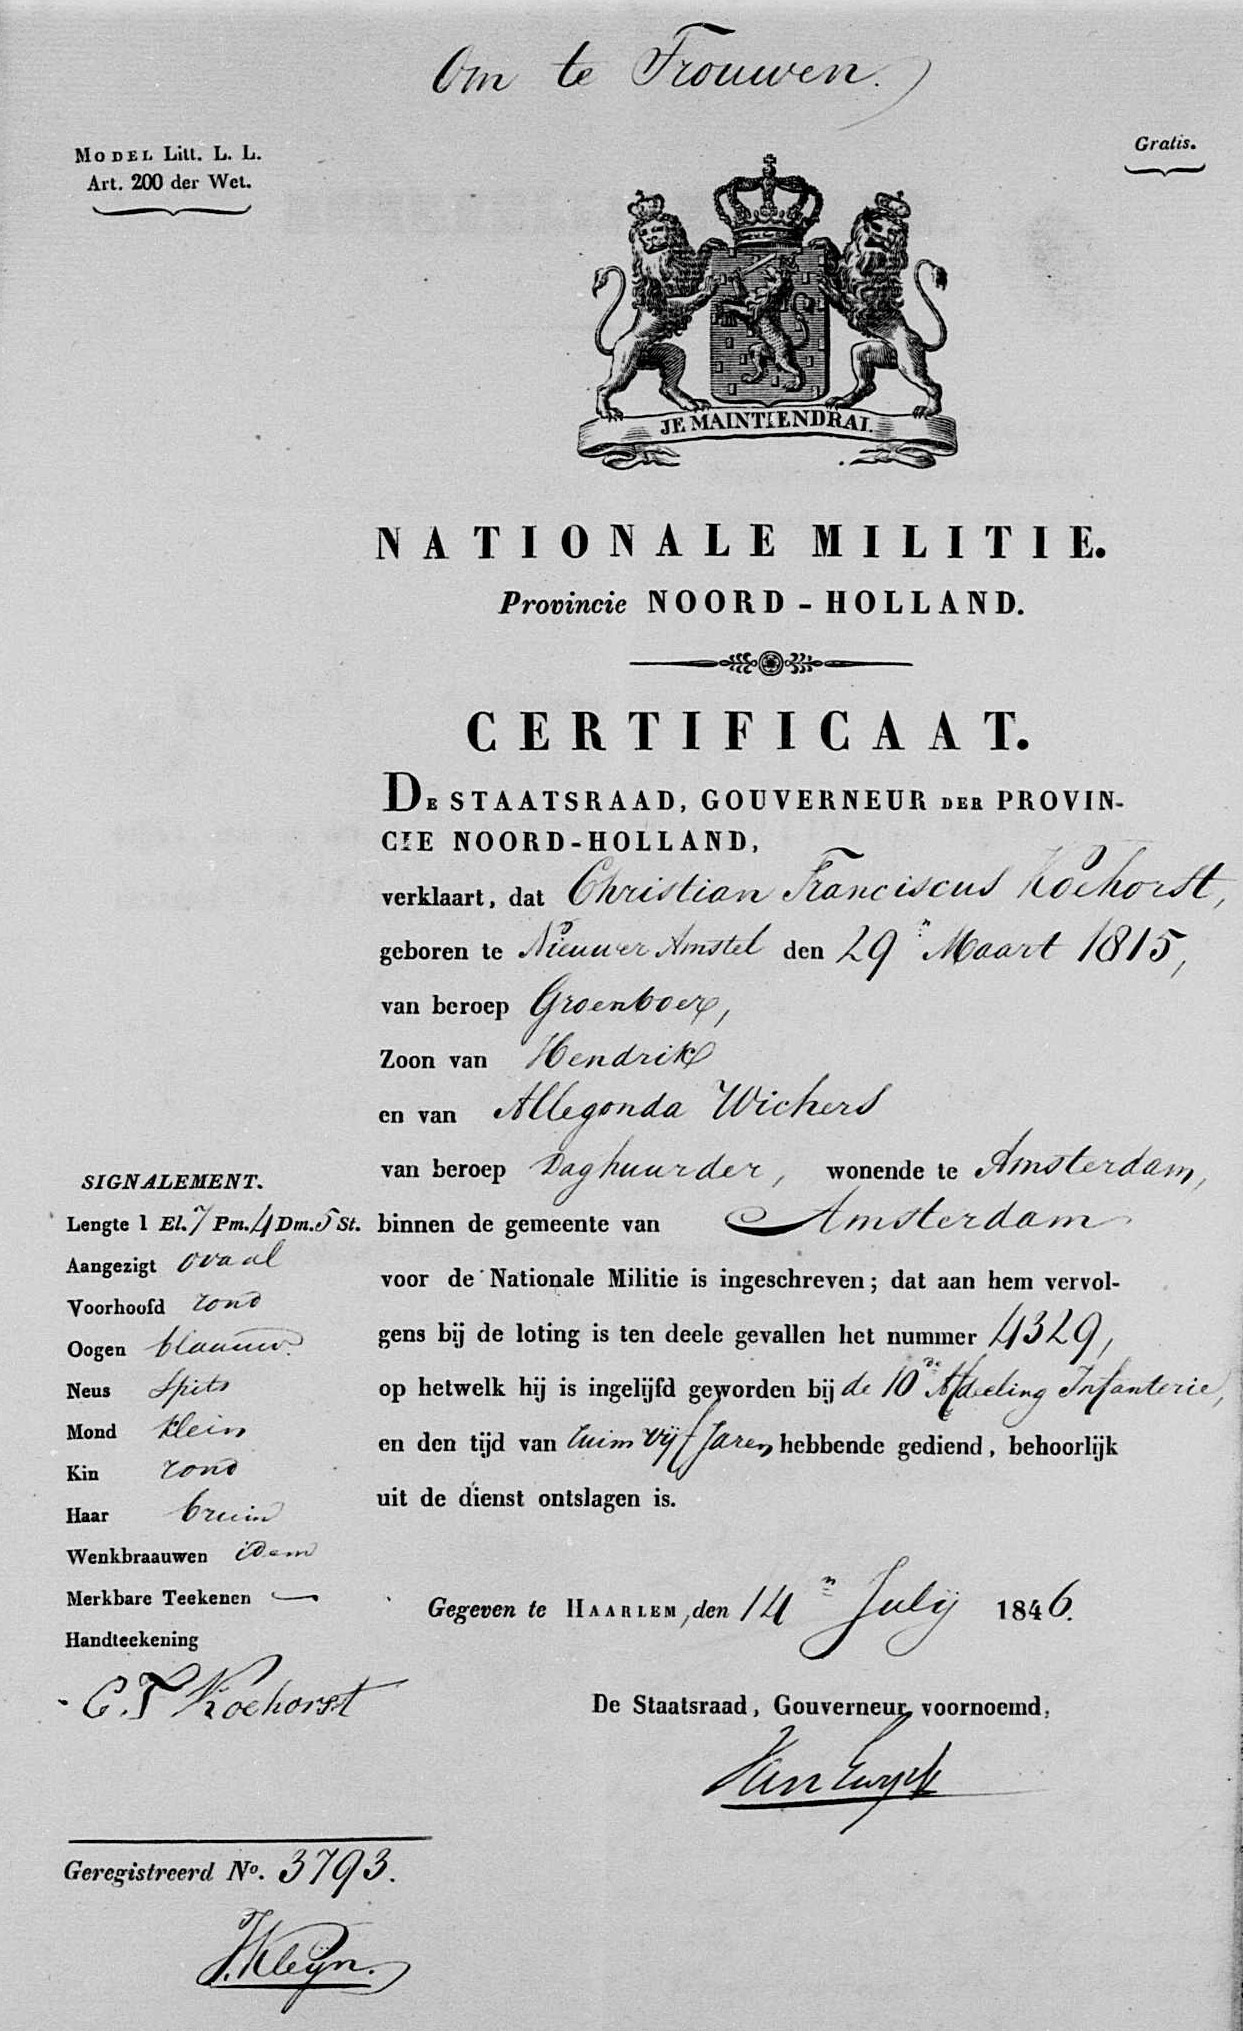 Om te Trouwen.
MODEL Litt. L. L.
Art. 200 der Wet.
Gratis.
JE MAINTIENDRAI.
NATIONALE MILITIE.
Provincie NOORD-HOLLAND.
CERTIFICAAT.
DE STAATSRAAD, GOUVERNEUR DER PROVIN-
CIE NOORD-HOLLAND,
verklaart, dat Christian Franciscus Koehorst,
geboren te Nieuwer Amstel den 29n Maart 1815,
van beroep Groenboer,
Zoon van Hendrik
en van Allegonda Wichers
van beroep Daghuurder, wonende te Amsterdam,
binnen de gemeente van Amsterdam
voor de Nationale Militie is ingeschreven; dat aan hem vervol-
gens bij de loting is ten deele gevallen het nummer 4329,
op hetwelk hij is ingelijfd geworden bij de 10de Afdeeling Infanterie,
en den tijd van ruim vijf Jaren hebbende gediend, behoorlijk
uit de dienst ontslagen is.
Gegeven te HAARLEM, den 14n Julij 1846.
De Staatsraad, Gouverneur voornoemd,
Van Ewijck
SIGNALEMENT.
Lengte 1 El. 7 Pm. 4 Dm. 5 St.
Aangezigt ovaal
Voorhoofd rond
Oogen blaauw
Neus spits
Mond klein
Kin rond
Haar bruin
Wenkbraauwen idem
Merkbare Teekenen —
Handteekening
C. F Koehorst
Geregistreerd No. 3793.
J. Kleijn.